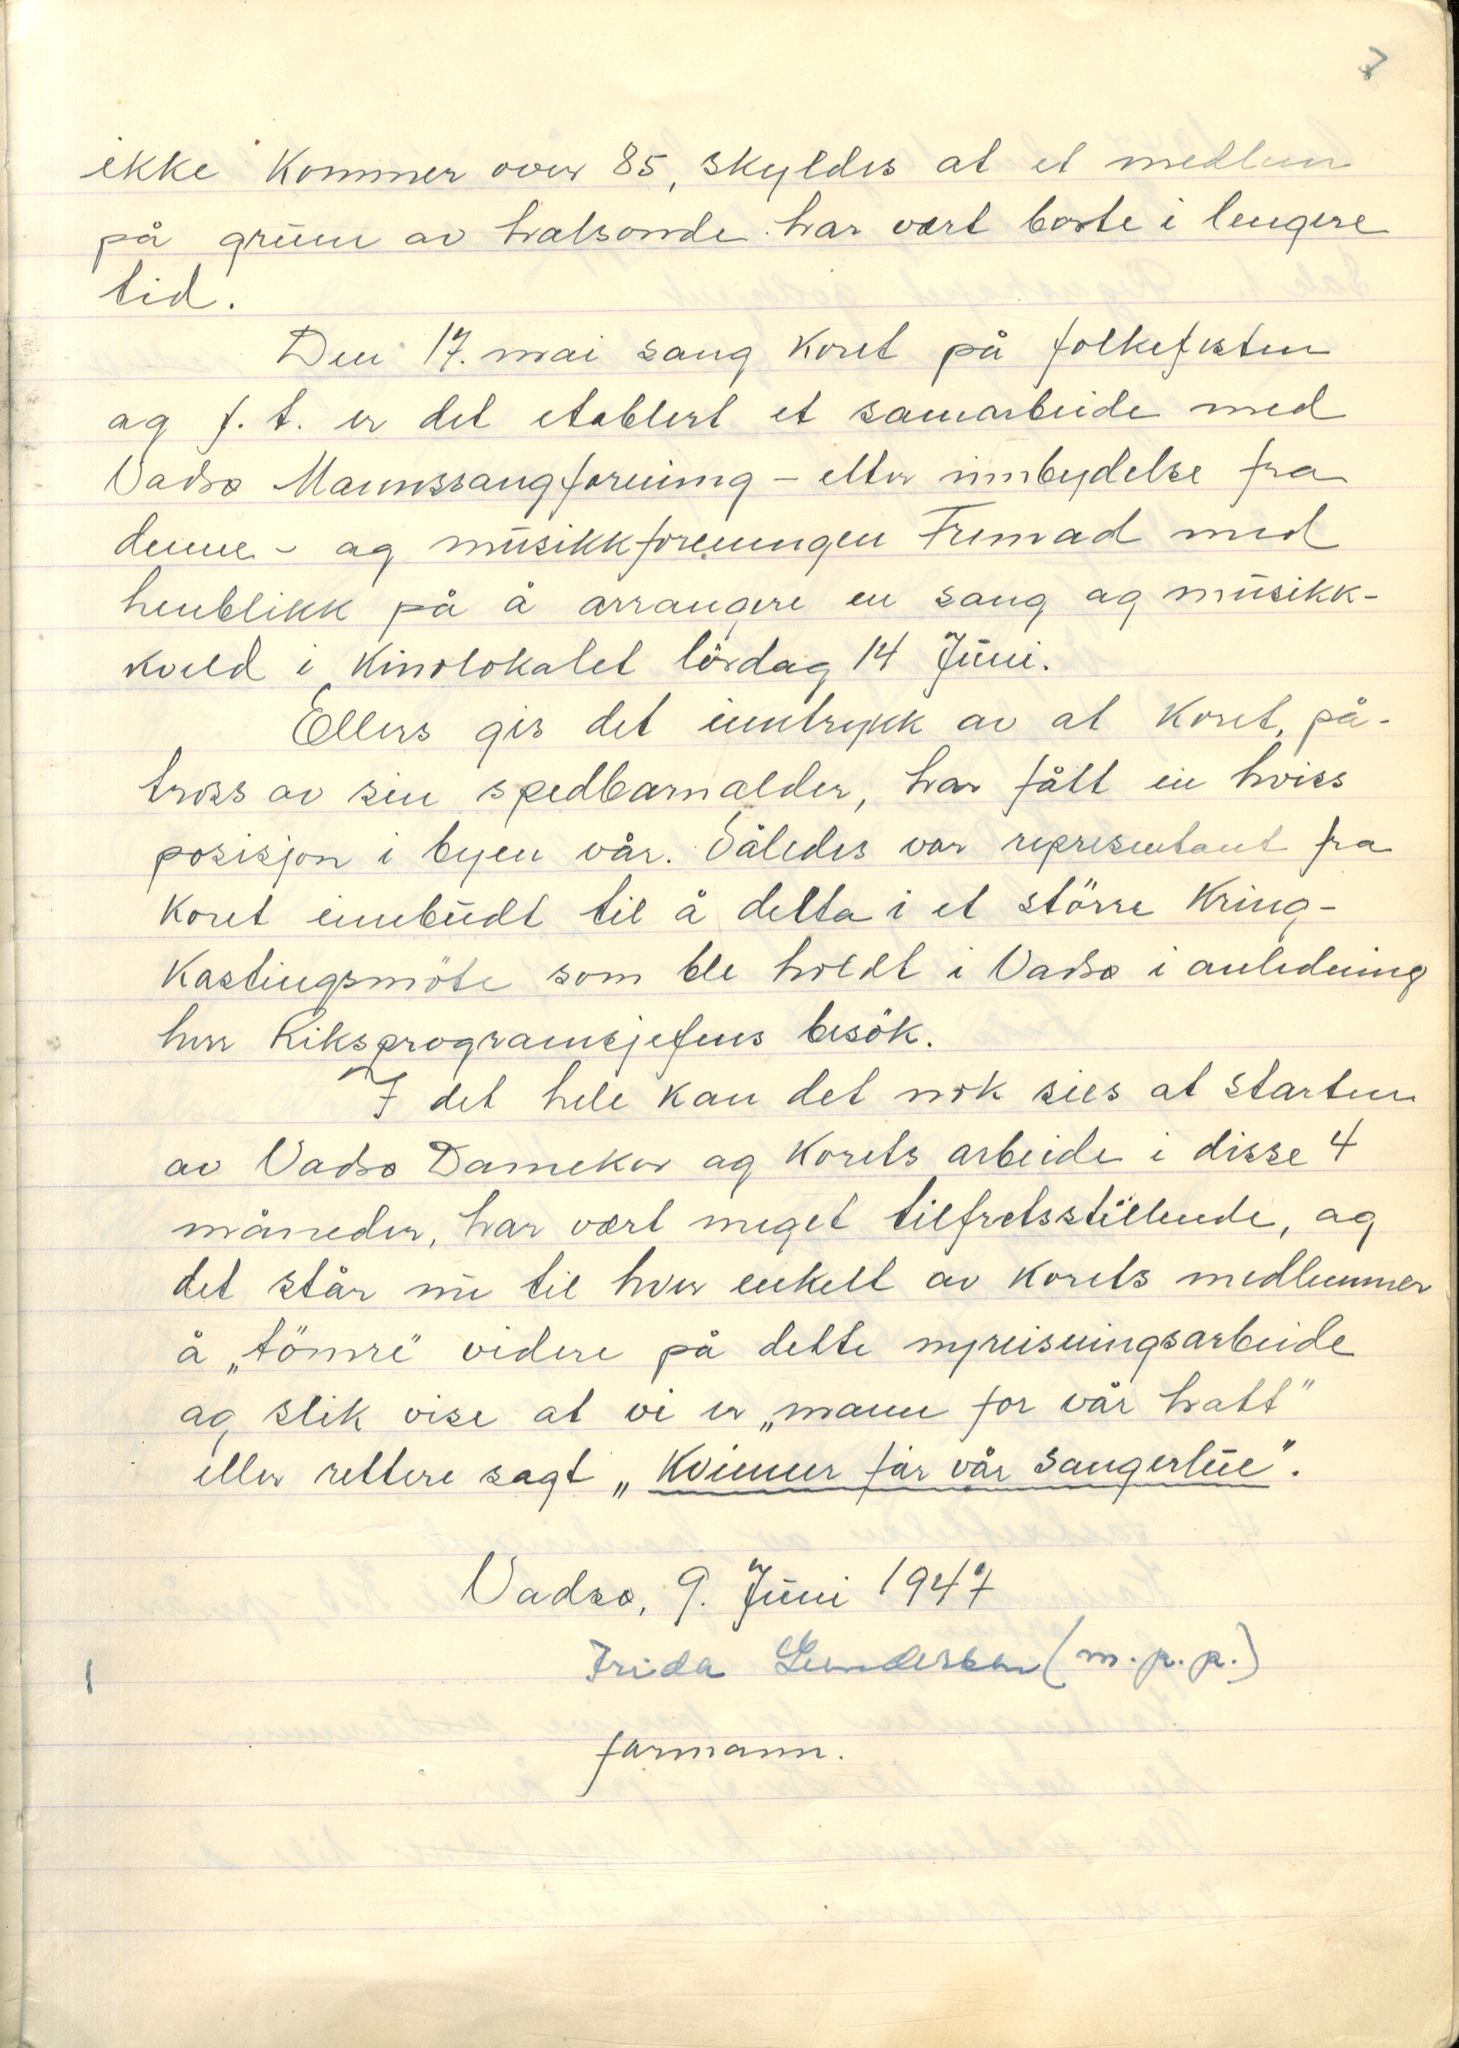 7
ikke kommer over 85, skyldes at et medlem
på grunn av halsonde har vært borte i lengere
tid.
Den 17. mai sang koret på folkefesten
og f. t. er det etablert et samarbeide med
Vadsø Mannssangforening - etter innbydelse fra
denne - og musikkforeningen Fremad med
henblikk på å arrangere en sang og musikk-
kveld i Kinolokalet lördag 14 Juni.
Ellers gis det inntrykk av at koret, på-
tross av sin spedbarnalder, har fått en hviss
posisjon i byen vår. Således var representant fra
koret innbudt til å delta i et större Kring-
kastingsmöte som ble holdt i Vadsø i anledning
herr Riksprogramsjefens besök.
I det hele kan det nok sies at starten
av Vadsø Damekor og korets arbeide i disse 4
måneder, har vært meget tilfretsstillende, og
det står nu til hver enkelt av korets medlemmer
å „tömre" videre på dette nyreisningsarbeide
og slik vise at vi er „mann for vår hatt"
eller rettere sagt „Kvinner for vår sangerlue".
Vadsø, 9. Juni 1947
Frida Gundersen (m.p.p.)
formann.